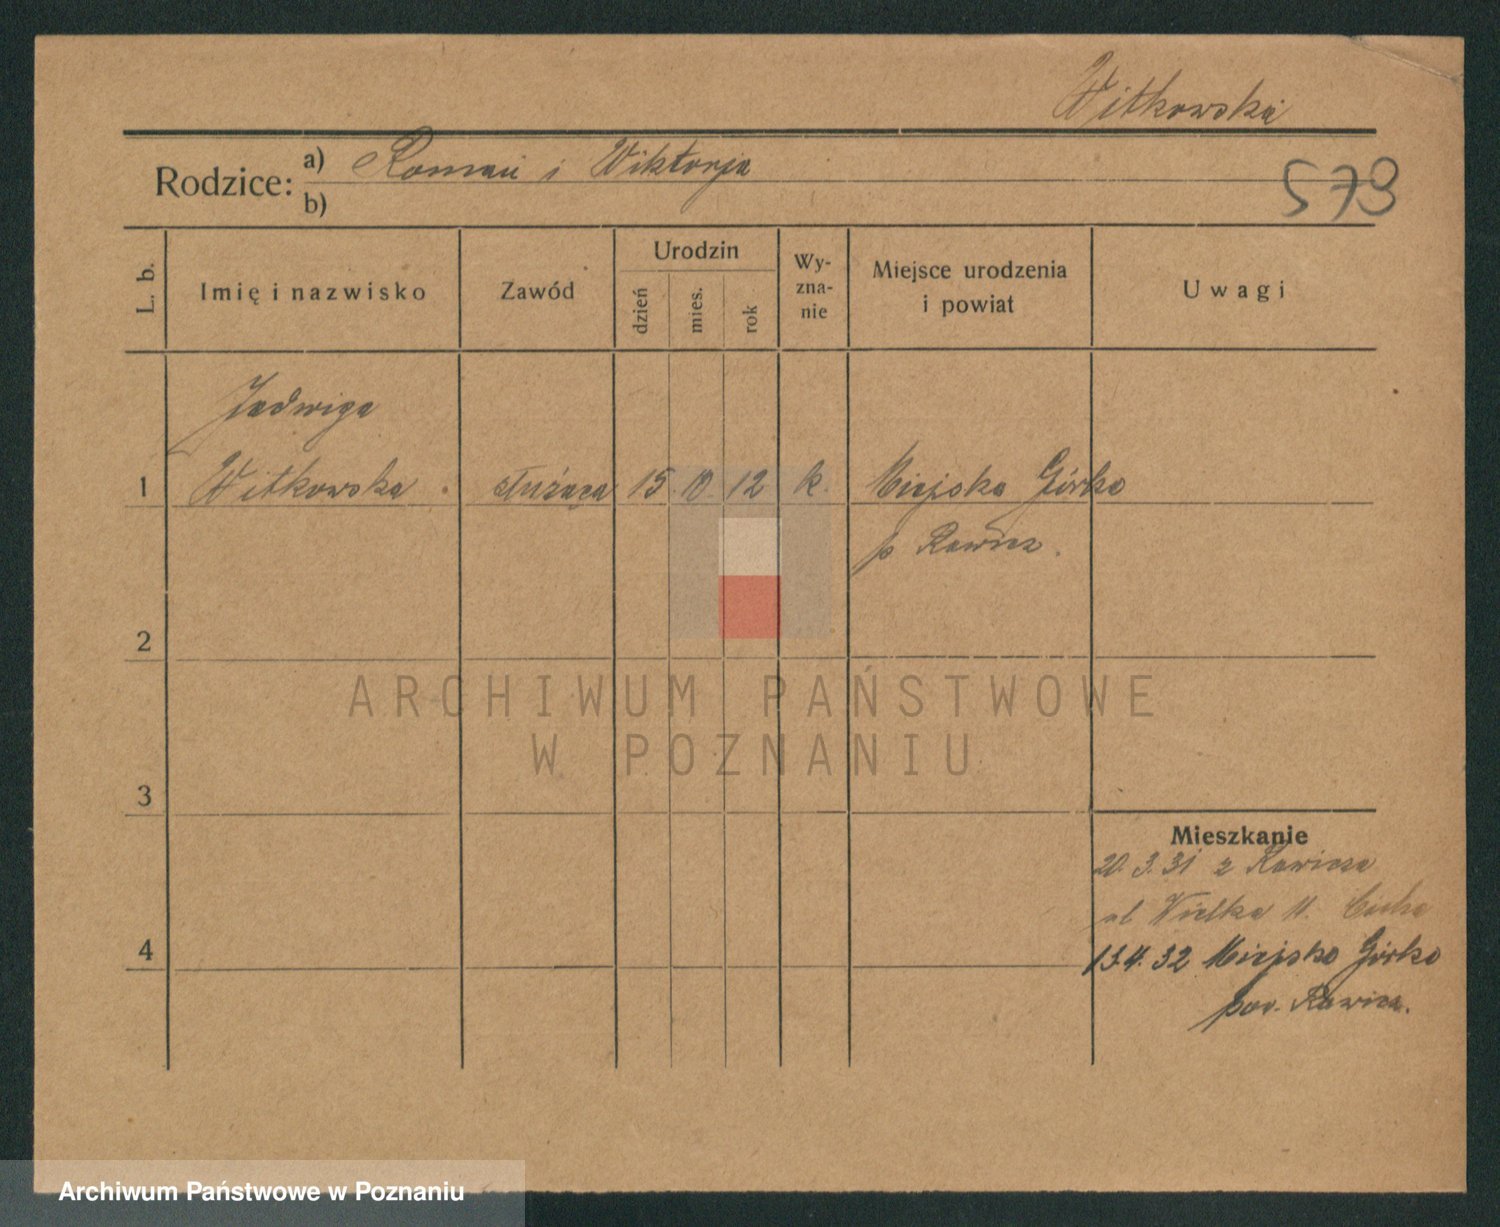 Witkowska
Rodzice: a) Roman i Wiktorja
579
b)
L. b.
Imię i nazwisko
Zawód
Urodzin
dzień
mies.
rok
Wy-
zna-
nie
Miejsce urodzenia
i powiat
Uwagi
Jadwiga
1 Witkowska służąca 15. 10. 12 k. Miejska Górka
p. Rawicz.
2
ARCHIWUM PAŃSTWOWE
W POZNANIU
3
Mieszkanie
20.3.31 z Rawicza
ul Wielka 11. Cicha
4
13.4.32 Miejska Górka
pow. Rawicz.
Archiwum Państwowe w Poznaniu